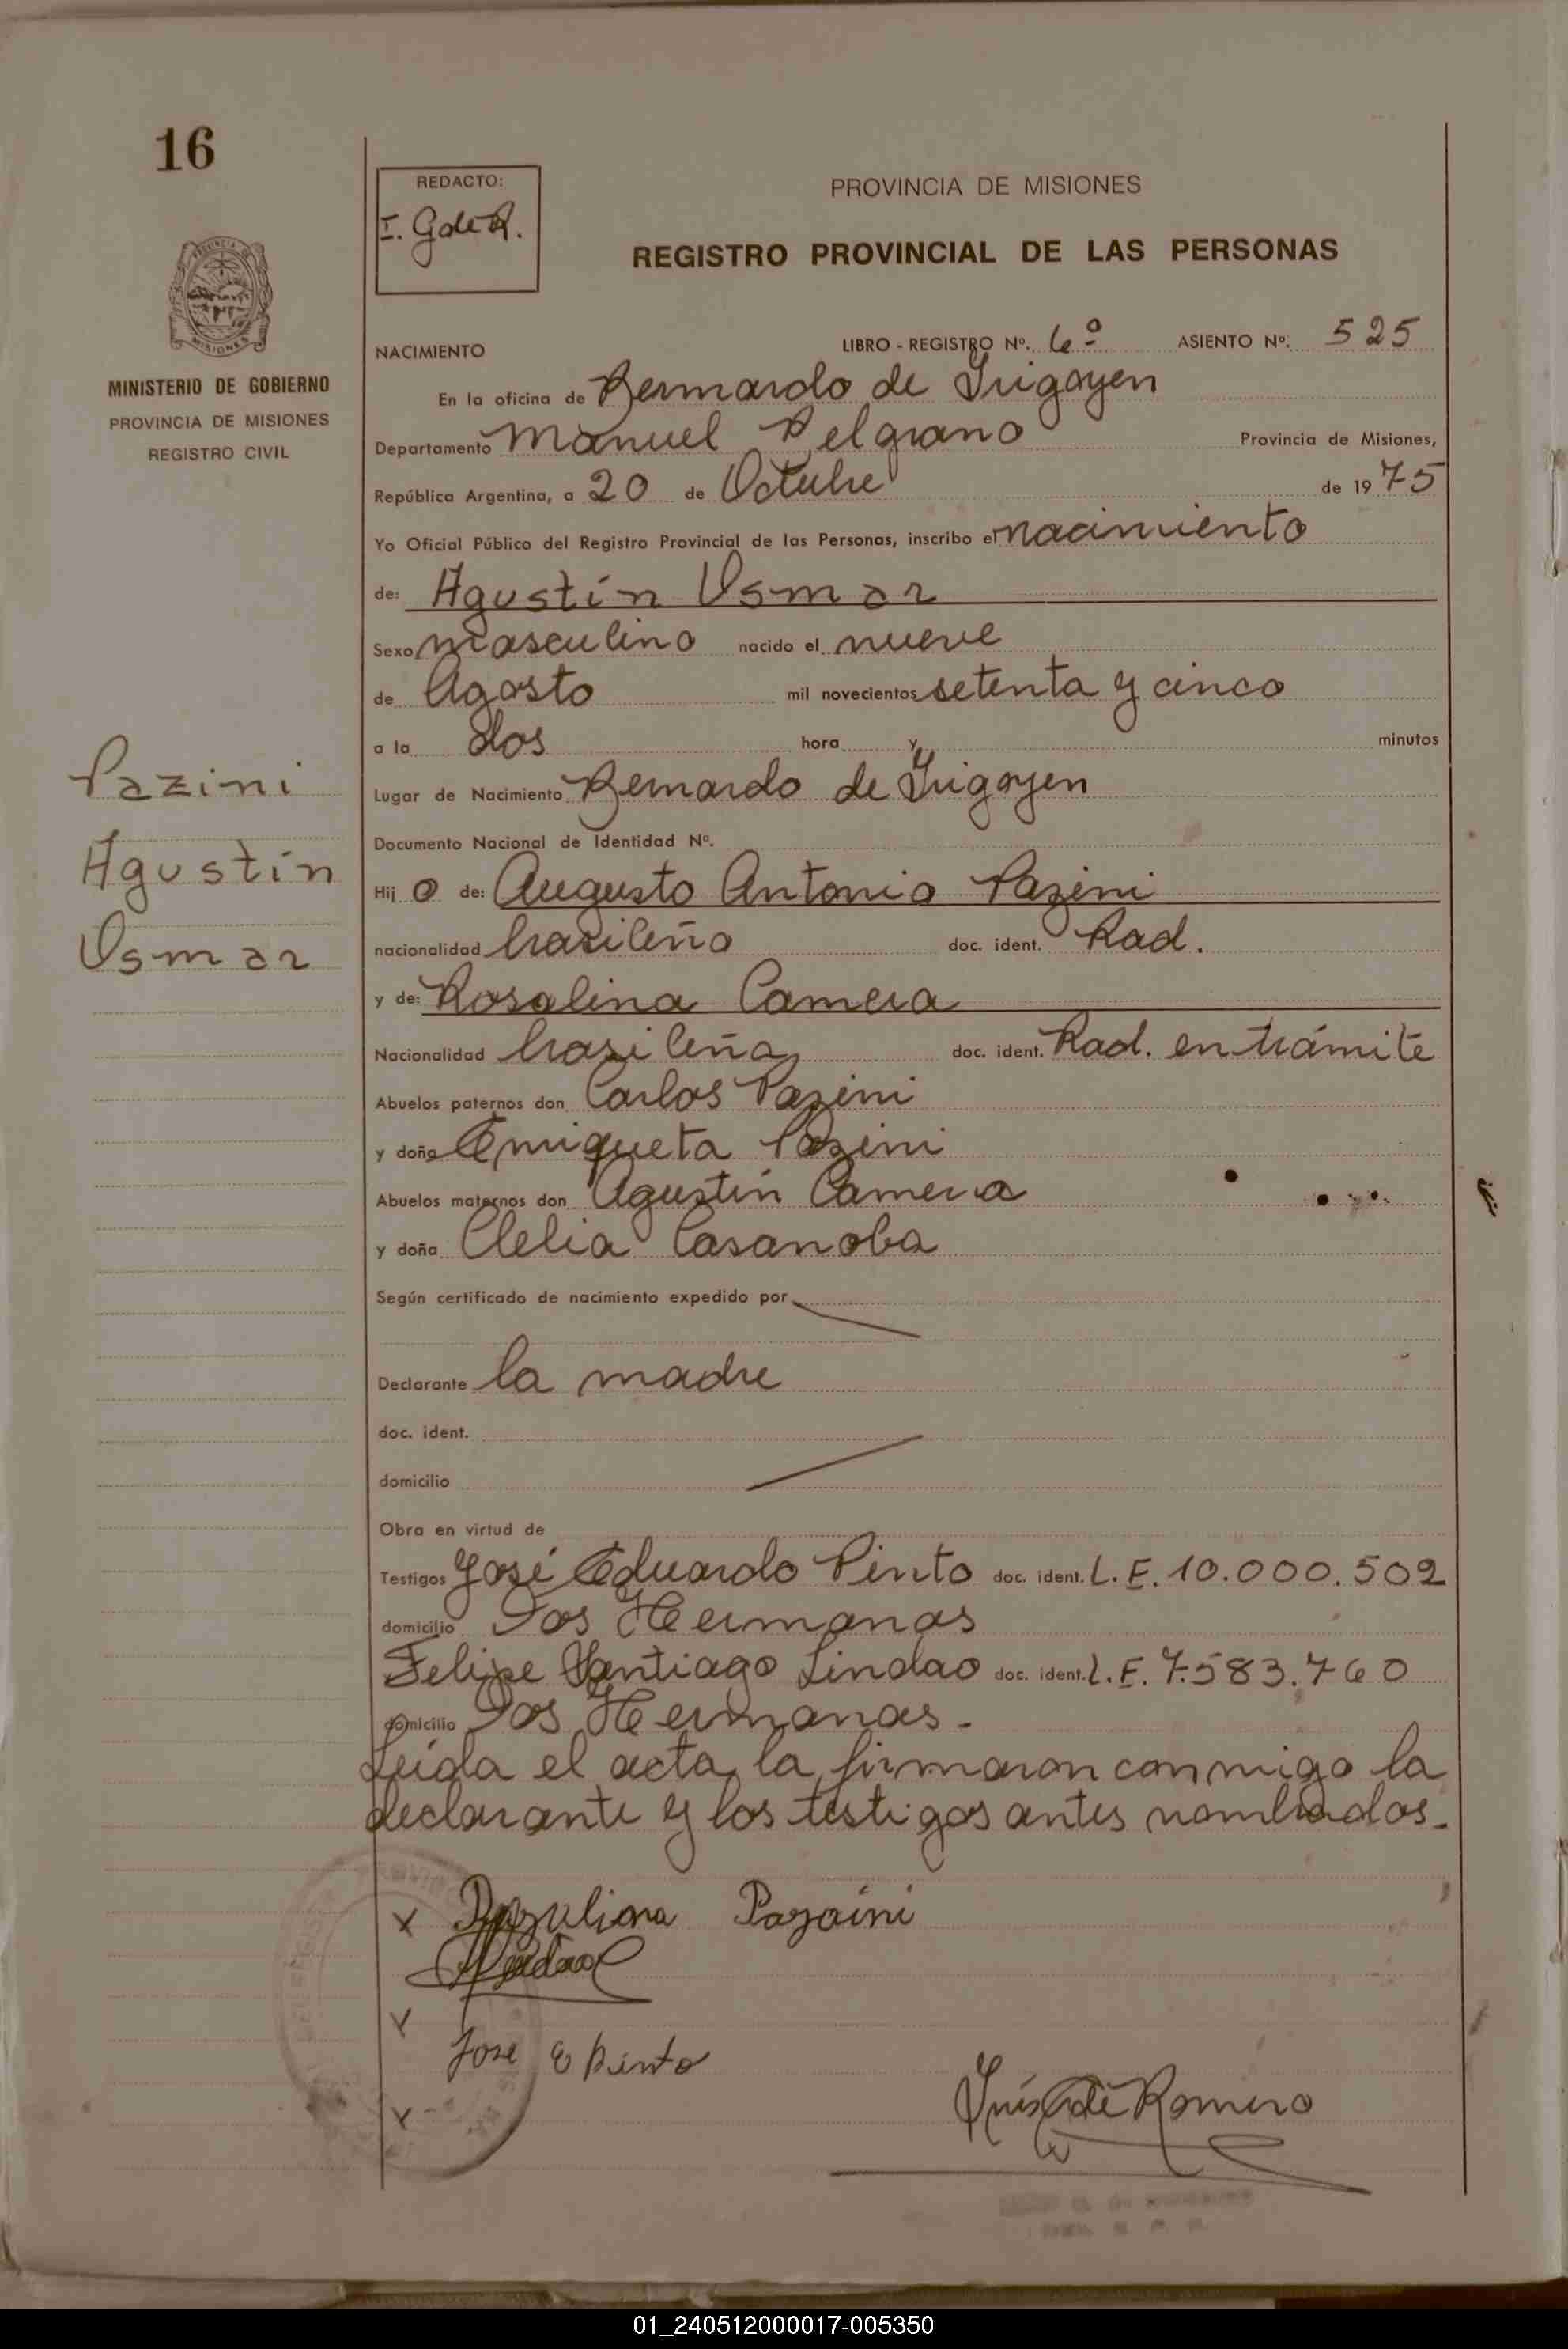 16
REDACTO:
I. G de R.
PROVINCIA DE MISIONES
REGISTRO PROVINCIAL DE LAS PERSONAS
MISIONES
MINISTERIO DE GOBIERNO
PROVINCIA DE MISIONES
REGISTRO CIVIL
NACIMIENTO LIBRO - REGISTRO Nº. 6º ASIENTO Nº: 525
En la oficina de Bernardo de Irigoyen
Departamento Manuel Belgrano Provincia de Misiones,
República Argentina, a 20 de Octubre de 1975
Yo Oficial Público del Registro Provincial de las Personas, inscribo el nacimiento
de: Agustín Osmar
Sexo masculino nacido el nueve
de Agosto mil novecientos setenta y cinco
a la dos hora y minutos
Lugar de Nacimiento Bernardo de Irigoyen
Documento Nacional de Identidad Nº.
Pazini
Agustín
Osmar
Hij o de: Augusto Antonio Pazini
nacionalidad brasileño doc. ident. Rad.
y de: Rosalina Camera
Nacionalidad brasileña doc. ident. Rad. en trámite
Abuelos paternos don Carlos Pazini
y doña Enriqueta Pazini
Abuelos maternos don Agustín Camera
y doña Clelia Casanoba
Según certificado de nacimiento expedido por
Declarante la madre
doc. ident.
domicilio
Obra en virtud de
Testigos José Eduardo Pinto doc. ident. L. E. 10.000.502
domicilio Dos Hermanas
Felipe Santiago Lindao doc. ident. L. E. 7.583.760
domicilio Dos Hermanas.
Leída el acta, la firmaron conmigo la
declarante y los testigos antes nombrados.
x Rozulina Pazaini
Lindao
Jose E Pinto
Inés G de Romero
01_240512000017-005350